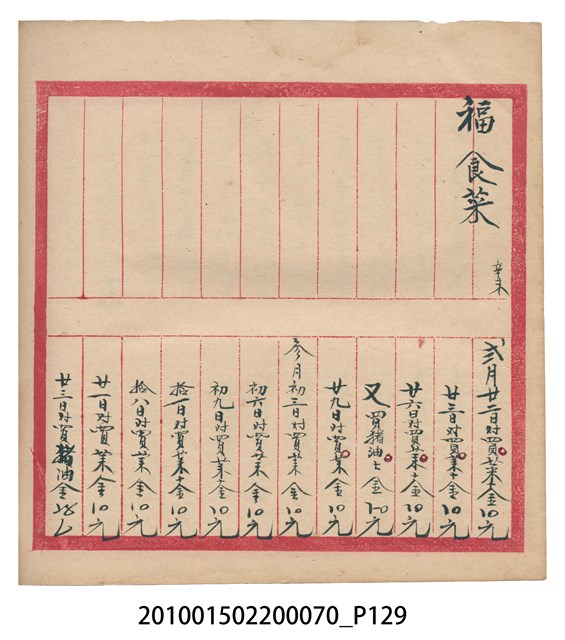 福食菜
辛未
弍月廿二日对買菜金10元
廿三日对買菜士金10元
廿六日对買菜士金10元
又買猪油士金10元
廿九日对買菜金10元
参月初三日对買菜士金10元
初六日对買菜金10元
初九日对買菜士金10元
拾一日对買菜士金10元
拾八日对買菜金10元
廿一日对買菜金10元
廿三日对買猪油金
201001502200070_P129